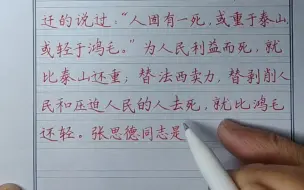 迁的说过:“人固有一死,或重于泰山
或轻于鸿毛。”为人民利益而死,就
比泰山还重;替法西卖力,替剥削人
民和压迫人民的人去死,就比鸿毛
还轻。张思德同志是